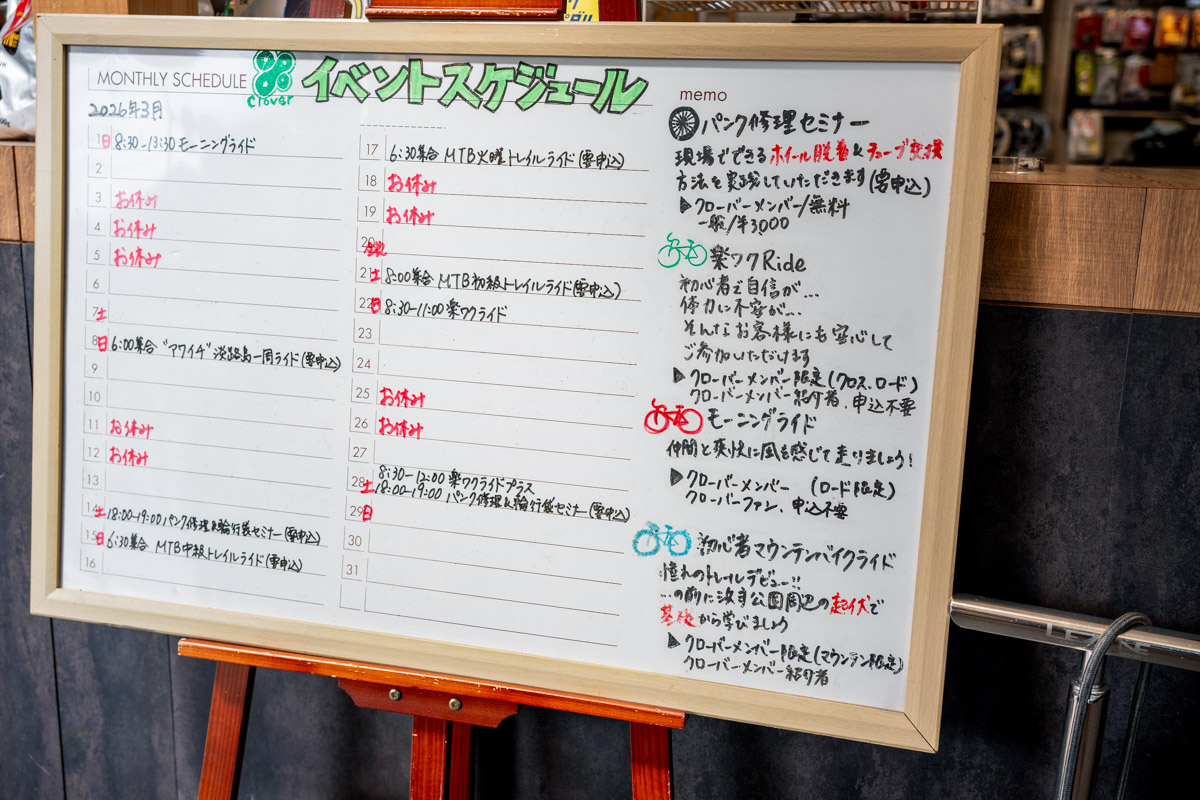 MONTHLY SCHEDULE
clover
イベントスケジュール
2026年3月
1 日 8:30-13:30 モーニングライド
2
3 お休み
4 お休み
5 お休み
6
7 土
8 日 6:00集合 "アワイチ" 淡路島一周ライド(要申込)
9
10
11 お休み
12 お休み
13
14 土 18:00-19:00 パンク修理&輪行袋セミナー(要申込)
15 日 6:30集合 MTB中級トレイルライド(要申込)
16
17 6:30集合 MTB火曜トレイルライド(要申込)
18 お休み
19 お休み
20
21 土 8:00集合 MTB初級トレイルライド(要申込)
22 日 8:30-11:00 楽ワクライド
23
24
25 お休み
26 お休み
27
28 土 8:30-12:00 楽ワクライドプラス
18:00-19:00 パンク修理&輪行袋セミナー(要申込)
29 日
30
31
memo
パンク修理セミナー
現場でできるホイール脱着&チューブ交換
方法を実践していただきます(要申込)
▶クローバーメンバー/無料
一般/¥3,000
楽ワクRide
初心者で自信が...
体力に不安が...
そんなお客様にも安心して
ご参加いただけます
▶クローバーメンバー限定(クロス、ロード)
クローバーメンバー紹介者、申込不要
モーニングライド
仲間と爽快に風を感じて走りましょう!
▶クローバーメンバー (ロード限定)
クローバーファン、申込不要
初心者マウンテンバイクライド
憧れのトレイルデビュー!!
...の前に浜寺公園周辺の起伏で
基礎から学びましょう
▶クローバーメンバー限定(マウンテン限定)
クローバーメンバー紹介者